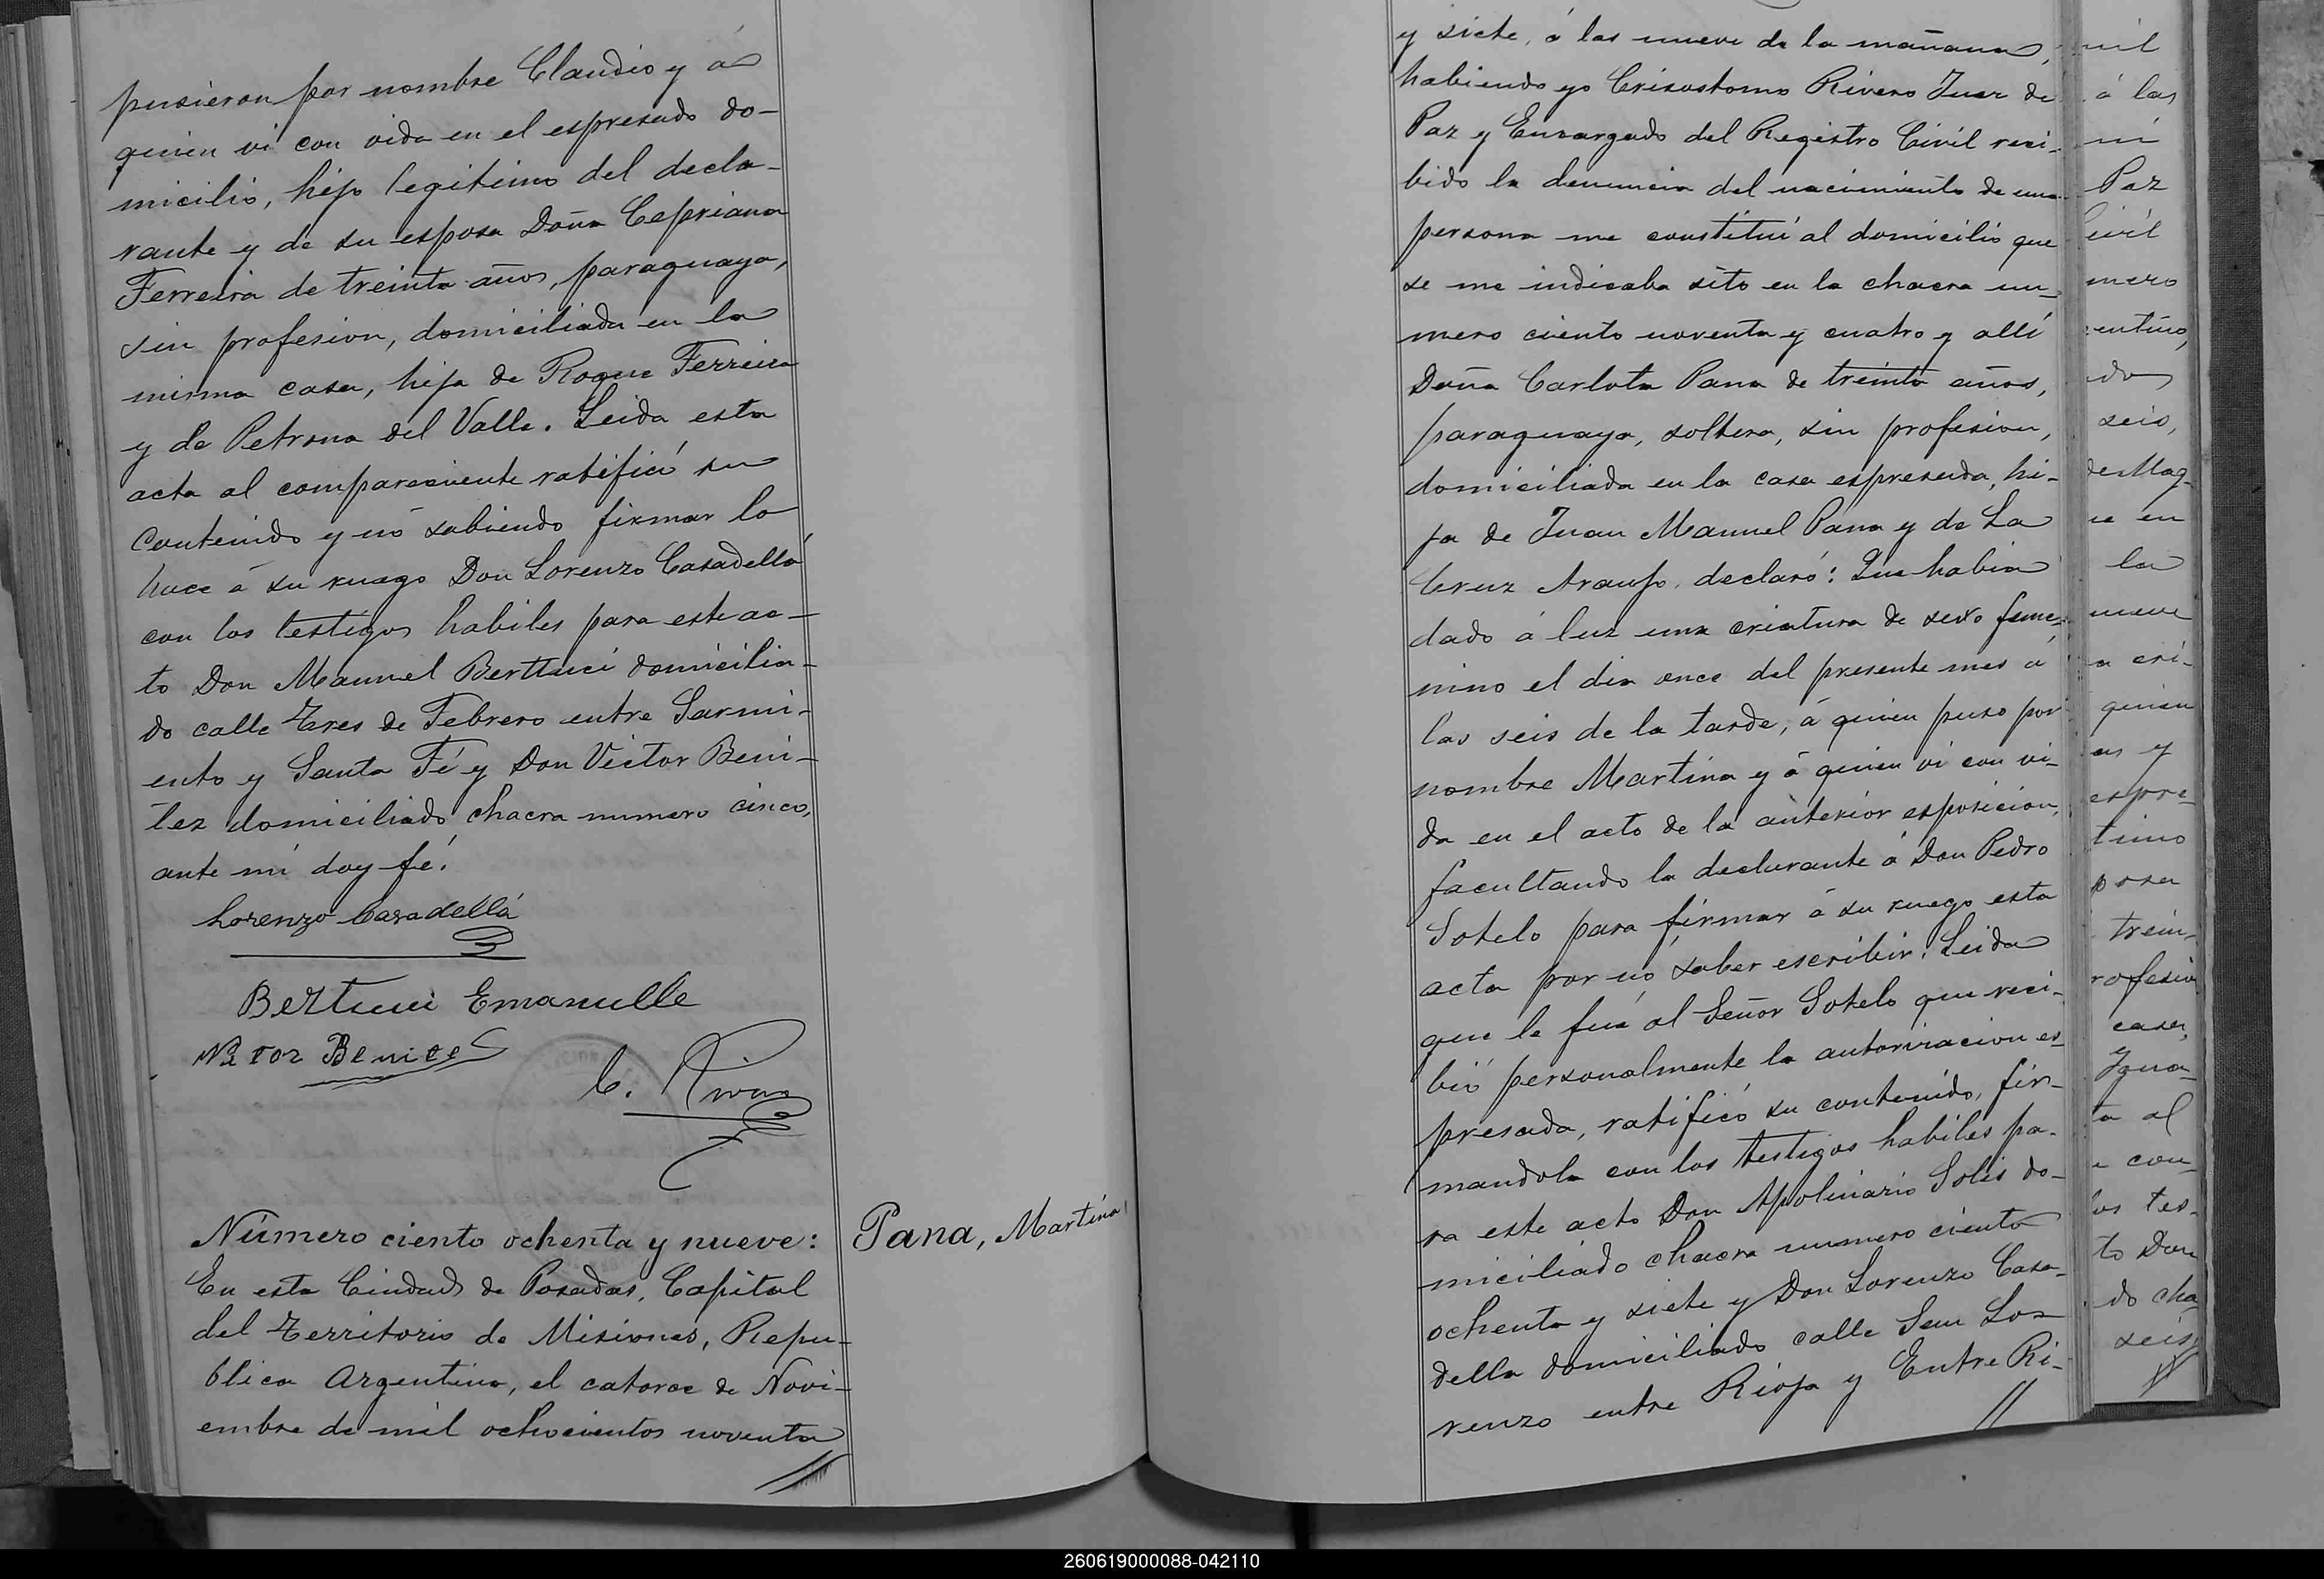 pusieron por nombre Claudio y á
quien vi con vida en el espresado do-
micilio, hijo legitimo del decla-
rante y de su esposa Doña Cepriana
Ferreira de treinta años, paraguaya,
sin profesion, domiciliada en la
misma casa, hija de Roque Ferreira
y de Petrona del Valle. Leida esta
acta al compareciente ratificó su
contenido y nó sabiendo firmar lo
hace á su ruego Don Lorenzo Casadellá
con los testigos habiles para este ac-
to Don Manuel Berttuci domicilia-
do calle Tres de Febrero entre Sarmi-
ento y Santa Fé y Don Victor Beni-
tez domiciliado chacra numero cinco,
ante mí doy fé.
Lorenzo Casadellá
Bertucci Emanuelle
Vitor Benites
C. Rivero
Número ciento ochenta y nueve:
Pana, Martina
En esta Ciudad de Posadas, Capital
del Territorio de Misiones, Repu-
blica Argentina, el catorce de Novi-
embre de mil ochocientos noventa
y siete, á las nueve de la mañana,
habiendo yo Crisostomo Rivero Juez de
Paz y Encargado del Registro Civil reci-
bido la denuncia del nacimiento de una
persona me constituí al domicilio que
se me indicaba sito en la chacra nu-
mero ciento noventa y cuatro y allí
Doña Carlota Pana de treinta años,
paraguaya, soltera, sin profesion,
domiciliada en la casa espresada, hi-
ja de Juan Manuel Pana y de La
Cruz Araujo, declaró: Que habia
dado á luz una criatura de sexo feme-
nino el dia once del presente mes á
las seis de la tarde, á quien puso por
nombre Martina y á quien vi con vi-
da en el acto de la anterior esposicion,
facultando la declarante á Don Pedro
Sotelo para firmar á su ruego esta
acta por nó saber escribir. Leida
que le fué al Señor Sotelo que reci-
bió personalmente la autorizacion es-
presada, ratificó su contenido, fir-
mandola con los testigos habiles pa-
ra este acto Don Apolinario Solis do-
miciliado chacra numero ciento
ochenta y siete y Don Lorenzo Casa-
della domiciliado calle San Lo-
renzo entre Rioja y Entre Ri-
mil
á las
mi
Paz
Civil
mero
entino,
do
seis,
de Mag-
ue en
la
nueve
a cri-
quien
as y
espre-
timo
posa
trein-
rofesion
casa,
y
Igna-
ta al
con-
los tes-
to Don
do cha
seis,
260619000088-042110